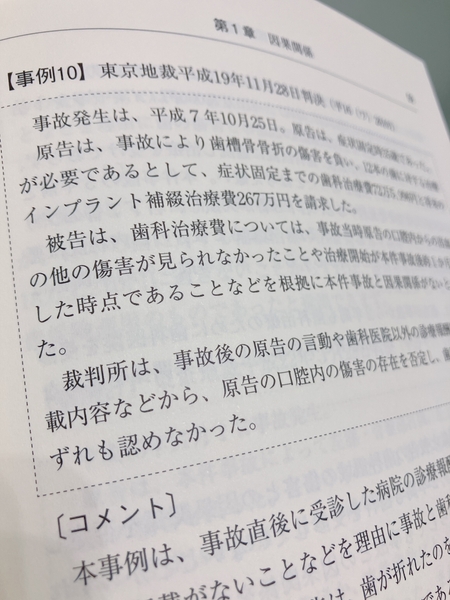 第1章 因果関係
【事例10】 東京地裁平成19年11月28日判決
事故発生は、平成7年10月25日。原告は、症状固定時
原告は、事故により歯槽骨骨折の傷害を負い、12本の歯に対する治療
が必要であるとして、症状固定までの歯科治療費
インプラント補綴治療費267万円を請求した。
被告は、歯科治療費については、事故当時原告の口腔内からの出血
の他の傷害が見られなかったことや治療開始が本件事故後約
した時点であることなどを根拠に本件事故と因果関係がないと
た。
裁判所は、事故後の原告の言動や歯科医院以外の診療報酬
載内容などから、原告の口腔内の傷害の存在を否定し、歯
ずれも認めなかった。
〔コメント〕
本事例は、事故直後に受診した病院の診療報酬
載がないことなどを理由に事故と歯科
は、歯が折れたのを